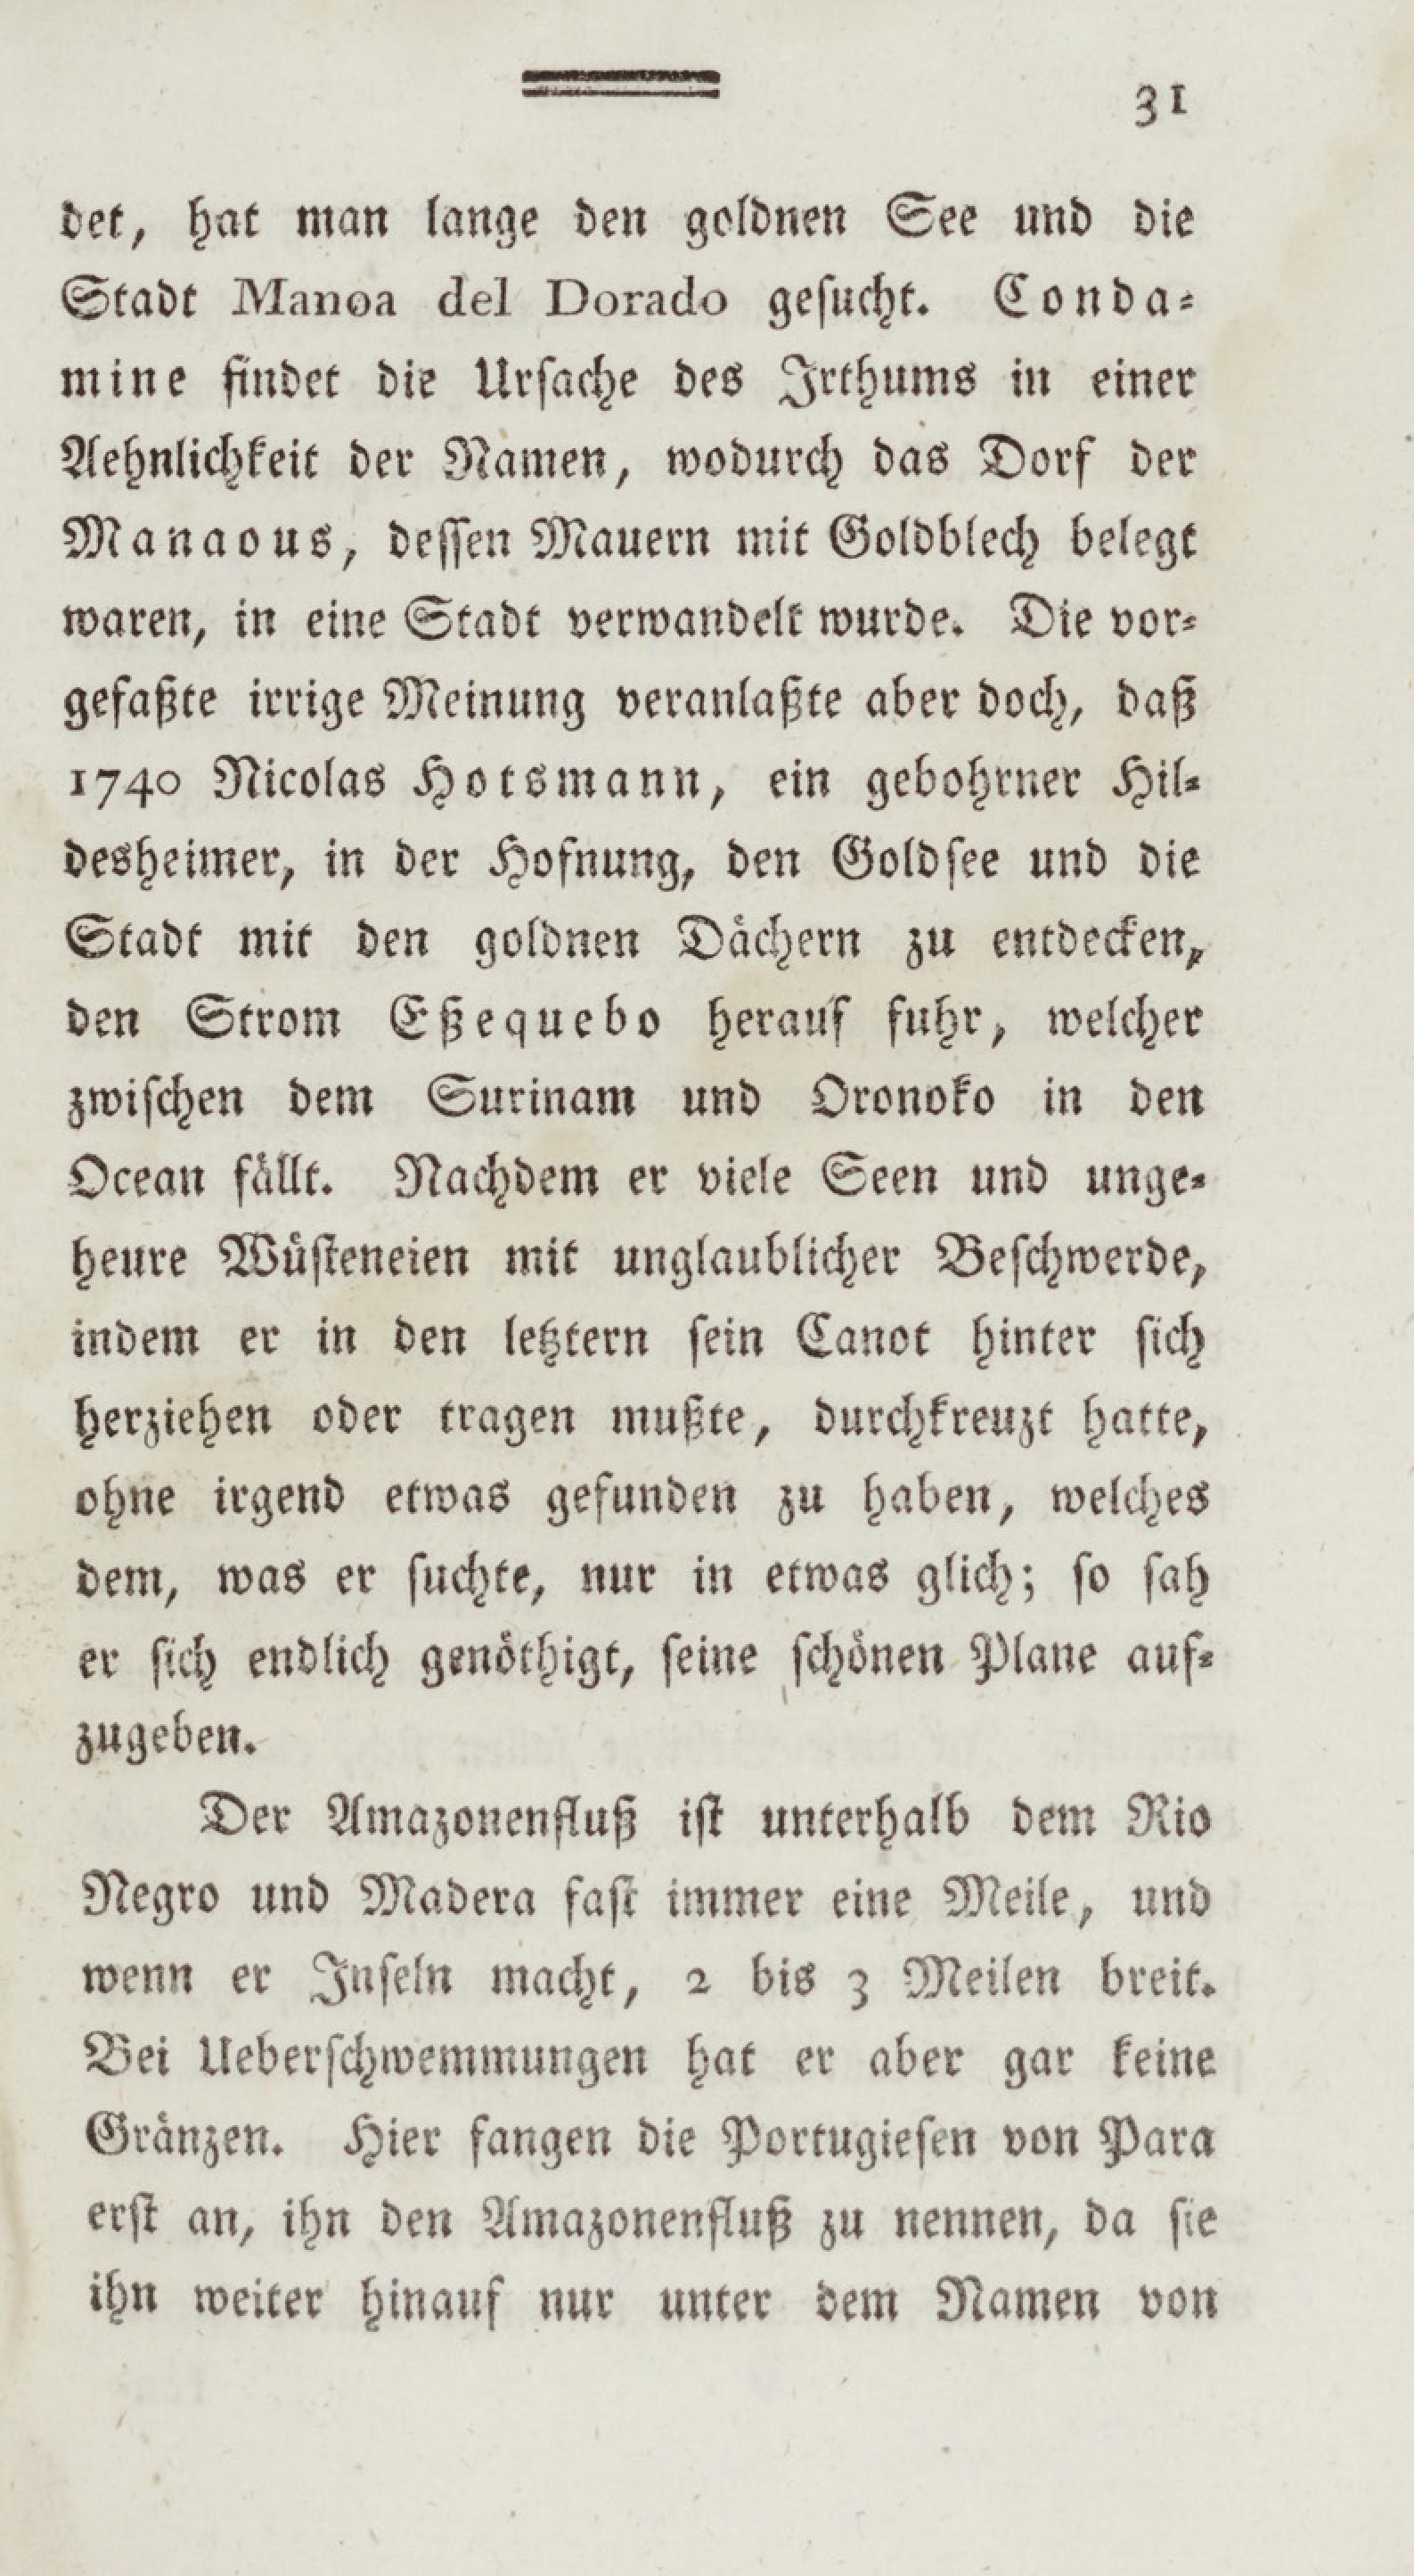 31
det, hat man lange den goldnen See und die
Stadt Manoa del Dorado gesucht. Conda-
mine findet die Ursache des Irthums in einer
Aehnlichkeit der Namen, wodurch das Dorf der
Manaous, dessen Mauern mit Goldblech belegt
waren, in eine Stadt verwandelt wurde. Die vor-
gefaßte irrige Meinung veranlaßte aber doch, daß
1740 Nicolas Hotsmann, ein gebohrner Hil-
desheimer, in der Hofnung, den Goldsee und die
Stadt mit den goldnen Dächern zu entdecken,
den Strom Eßequebo herauf fuhr, welcher
zwischen dem Surinam und Oronoko in den
Ocean fällt. Nachdem er viele Seen und unge-
heure Wüsteneien mit unglaublicher Beschwerde,
indem er in den letztern sein Canot hinter sich
herziehen oder tragen mußte, durchkreuzt hatte,
ohne irgend etwas gefunden zu haben, welches
dem, was er suchte, nur in etwas glich; so sah
er sich endlich genöthigt, seine schönen Plane auf-
zugeben.
Der Amazonenfluß ist unterhalb dem Rio
Negro und Madera fast immer eine Meile, und
wenn er Inseln macht, 2 bis 3 Meilen breit.
Bei Ueberschwemmungen hat er aber gar keine
Gränzen. Hier fangen die Portugiesen von Para
erst an, ihn den Amazonenfluß zu nennen, da sie
ihn weiter hinauf nur unter dem Namen von